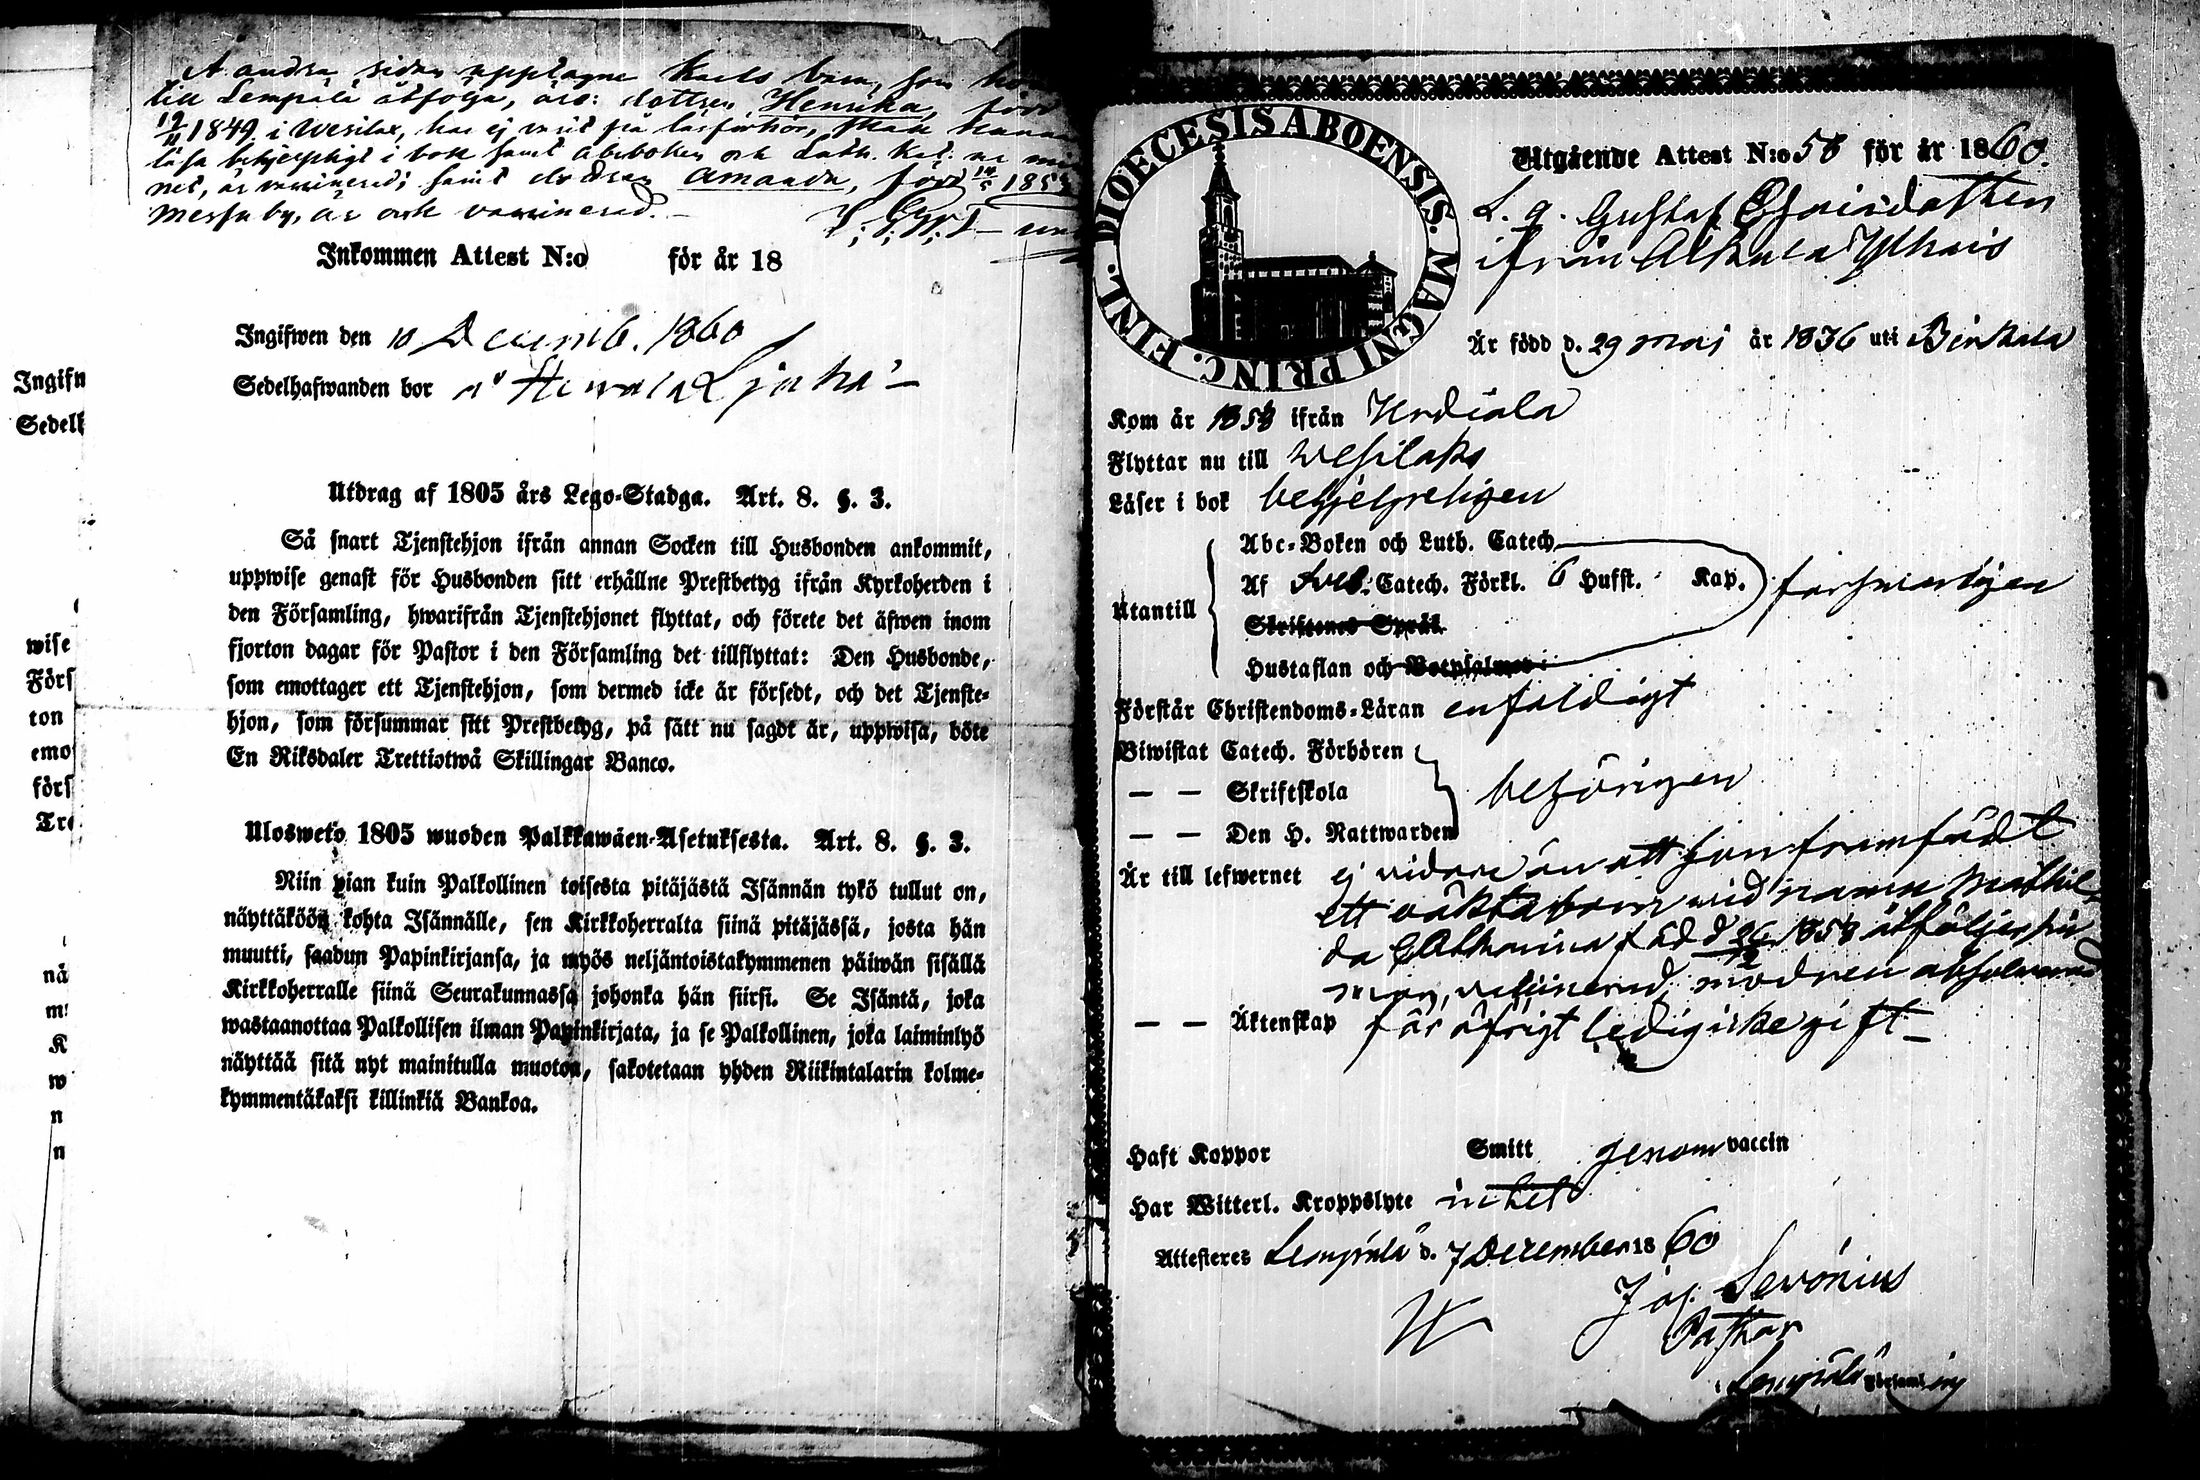 A andra sidan upptagne Karls barn, som
till Lempälä åtfölja, äro: dottren Henrika, född
19/11 1849 i Wesilax, har ej varit på läsförhör,
läsa behjelpligt i bok samt abcboken och Luth. Kat.
net, är vaccinerad; samt dodren Amanda, född 14/5 185
Messuby, är ock vaccinerad. –
Inkommen Attest N:o för år 18
Ingifwen den 10 Decemb. 1860
Sedelhafwanden bor
Utdrag af 1805 års Lego-Stadga. Art. 8. §. 3.
Så snart Tjenstehjon ifrån annan Socken till Husbonden ankommit,
uppwise genast för Husbonden sitt erhållne Prestbetyg ifrån Kyrkoherden i
den Församling, hwarifrån Tjenstehjonet flyttat, och förete det äfwen inom
fjorton dagar för Pastor i den Församling det tillflyttat: Den Husbonde,
som emottager ett Tjenstehjon, som dermed icke är försedt, och det Tjenste-
hjon, som försummar sitt Prestbetyg, på sätt nu sagdt är, uppwisa, böte
En Riksdaler Trettiotwå Skillingar Banco.
Ulosweto 1805 wuoden Palkkawäen-Asetuksesta. Art. 8. §. 3.
Niin pian kuin Palkollinen toisesta pitäjästä Isännän tykö tullut on,
näyttäköön kohta Isännälle, sen Kirkkoherralta siinä pitäjässä, josta hän
muutti, saadun Papinkirjansa, ja myös neljäntoistakymmenen päiwän sisällä
Kirkkoherralle siinä Seurakunnassa johonka hän siirsi. Se Isäntä, joka
wastaanottaa Palkollisen ilman Papinkirjata, ja se Palkollinen, joka laiminlyö
näyttää sitä nyt mainitulla muoton, sakotetaan yhden Riikintalarin kolme-
kymmentäkaksi killinkiä Bankoa.
Ingifw
Sedelh
wise
Förs
ton
emo
förs
Tre
nä
m
K
w
n
n
DIOECESIS ABOENSIS. MAGNI PRINC. FINL.
Utgående Attest N:o 58 för år 1860.
L. q. Gustaf
ifrån Alkula
Är född d. 29 maj år 1836 uti Birkala
Kom år 1858 ifrån Urdiala
Flyttar nu till Wesilaks
Läser i bok behjelpeligen
Utantill
Abc-Boken och Luth. Catech
Af Sveb: Catech. Förkl. 6 Hufst. Kap.
försvarligen
Skriftenes Språk
Hustaflan och Botpsalmer:
Förstår Christendoms-Läran enfaldigt
Biwistat Catech. Förhören
— — Skriftskola
behörigen
— — Den H. Nattwarden
Är till lefwernet ej vidare än att hon framfödt
ett oäkta barn wid namn Mathil-
da Catharina född 26/12 1858 åtföljer
vaccinerad modren absolverad
— — Äktenskap för öfrigt ledig icke gift –
Haft Koppor Smitt genom vaccin
Har Witterl. Kroppslyte intet
Attesteres Lempälä d. 7 December 1860
Jos. Serónius
Pastor
Lempälä Församling